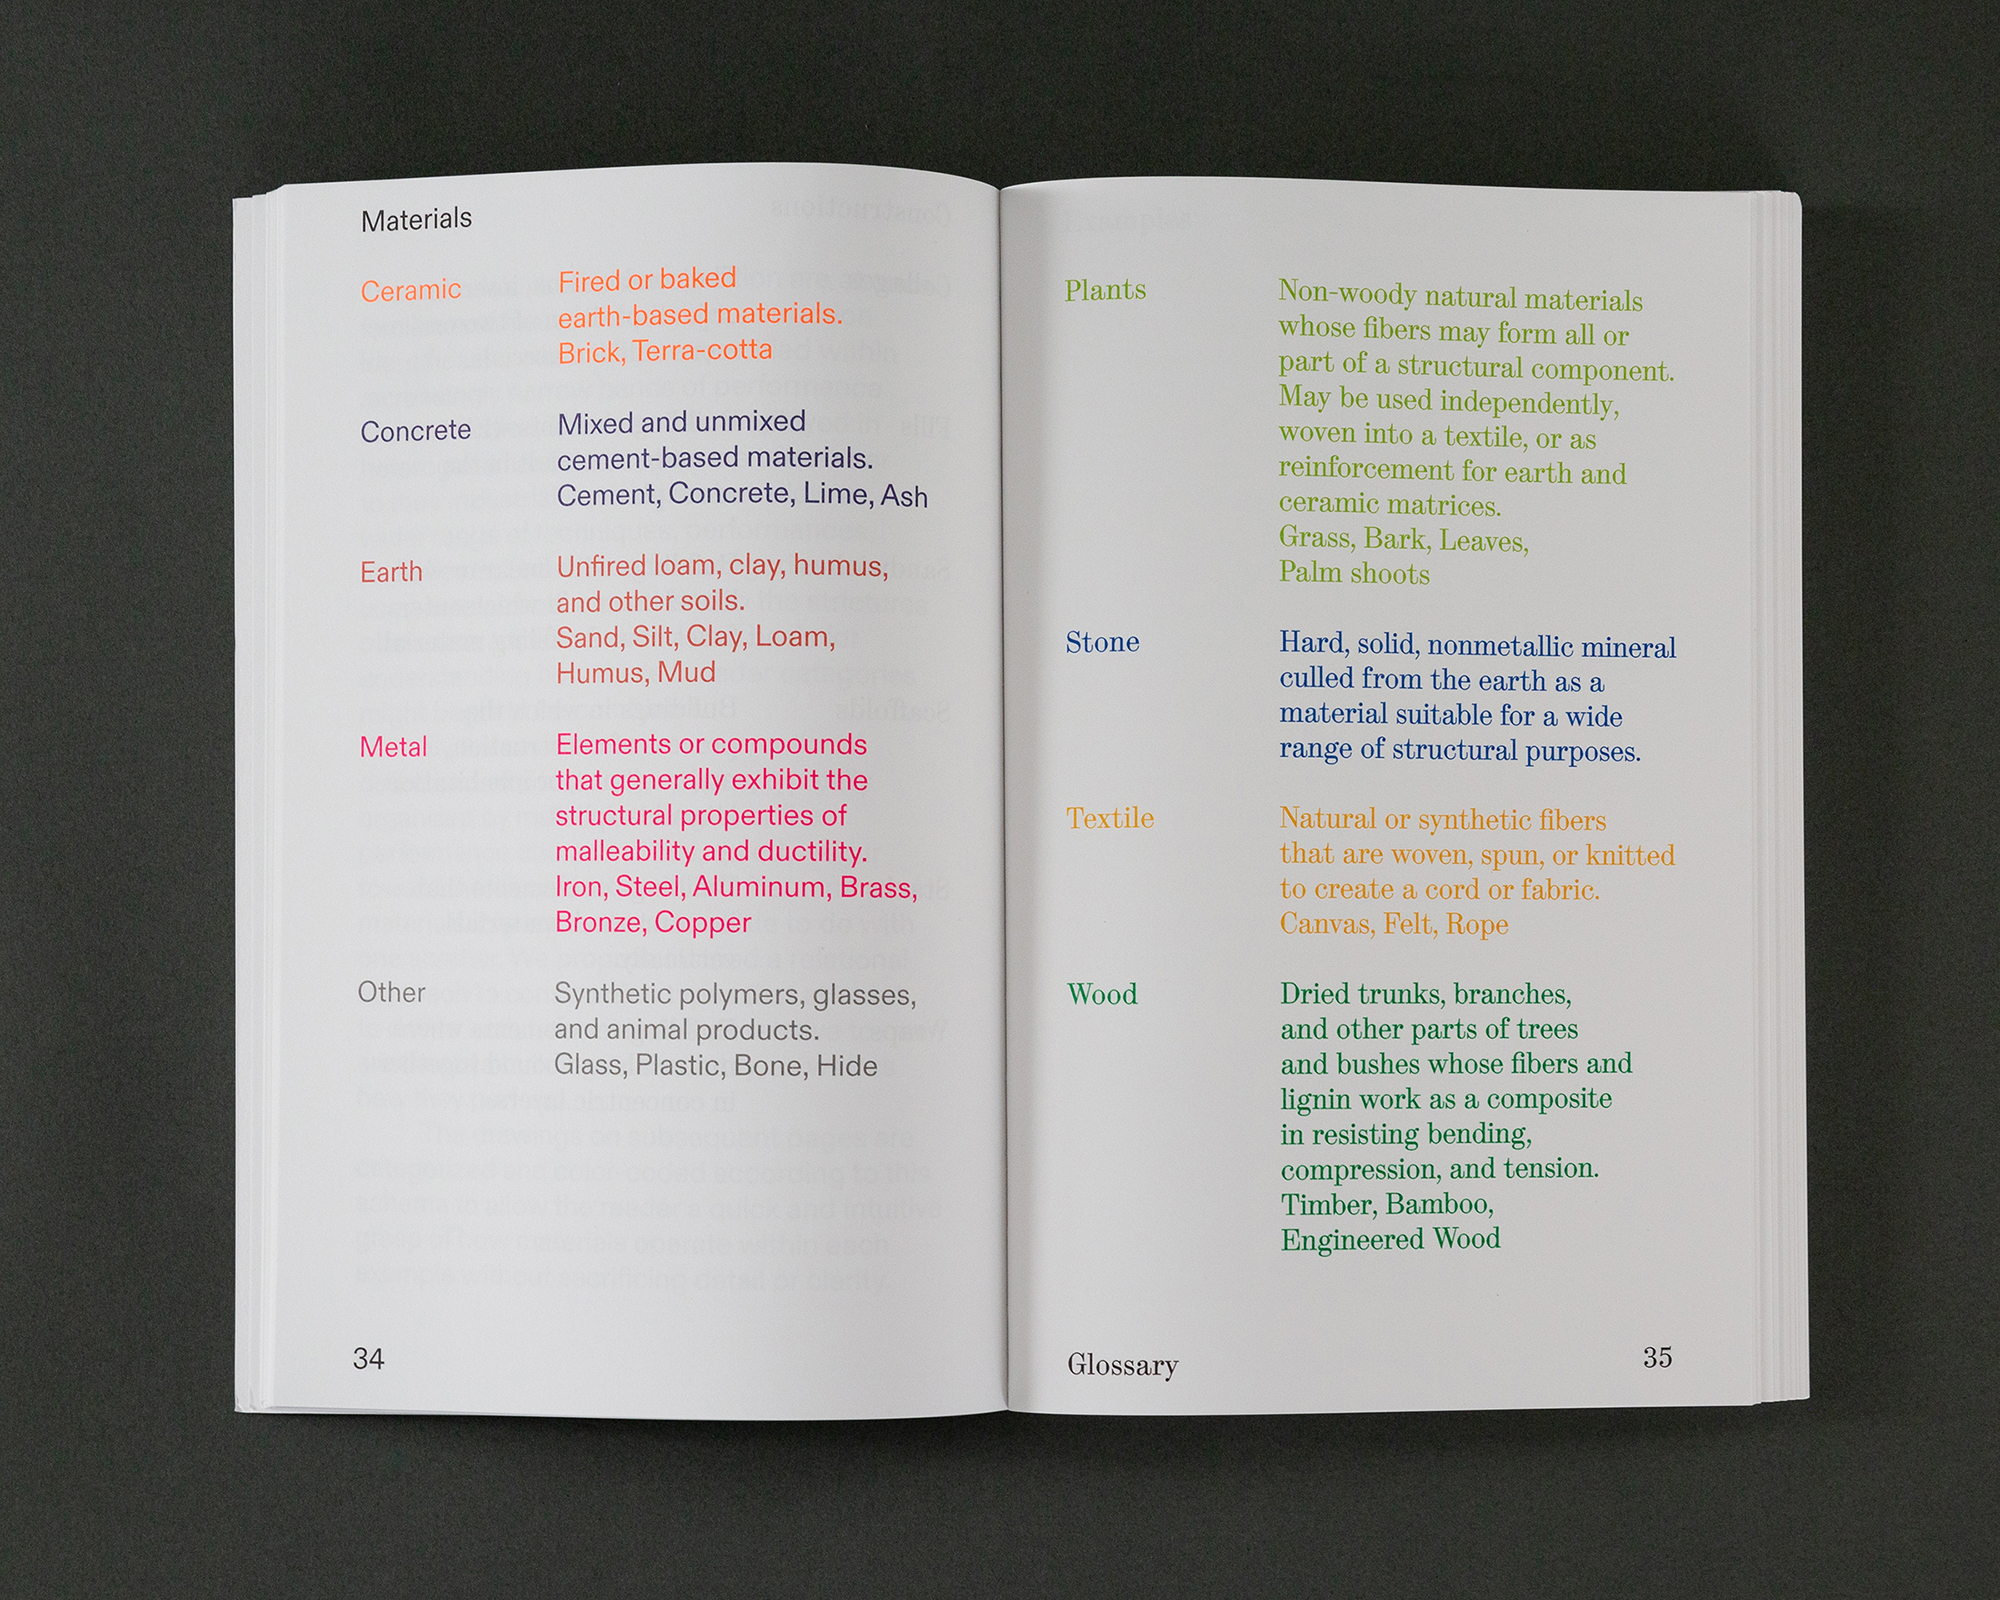 Materials
Ceramic
Fired or baked
earth-based materials.
Brick, Terra-cotta
Concrete
Mixed and unmixed
cement-based materials.
Cement, Concrete, Lime, Ash
Earth
Unfired loam, clay, humus,
and other soils.
Sand, Silt, Clay, Loam,
Humus, Mud
Metal
Elements or compounds
that generally exhibit the
structural properties of
malleability and ductility.
Iron, Steel, Aluminum, Brass,
Bronze, Copper
Other
Synthetic polymers, glasses,
and animal products.
Glass, Plastic, Bone, Hide
34
Plants
Non-woody natural materials
whose fibers may form all or
part of a structural component.
May be used independently,
woven into a textile, or as
reinforcement for earth and
ceramic matrices.
Grass, Bark, Leaves,
Palm shoots
Stone
Hard, solid, nonmetallic mineral
culled from the earth as a
material suitable for a wide
range of structural purposes.
Textile
Natural or synthetic fibers
that are woven, spun, or knitted
to create a cord or fabric.
Canvas, Felt, Rope
Wood
Dried trunks, branches,
and other parts of trees
and bushes whose fibers and
lignin work as a composite
in resisting bending,
compression, and tension.
Timber, Bamboo,
Engineered Wood
Glossary
35